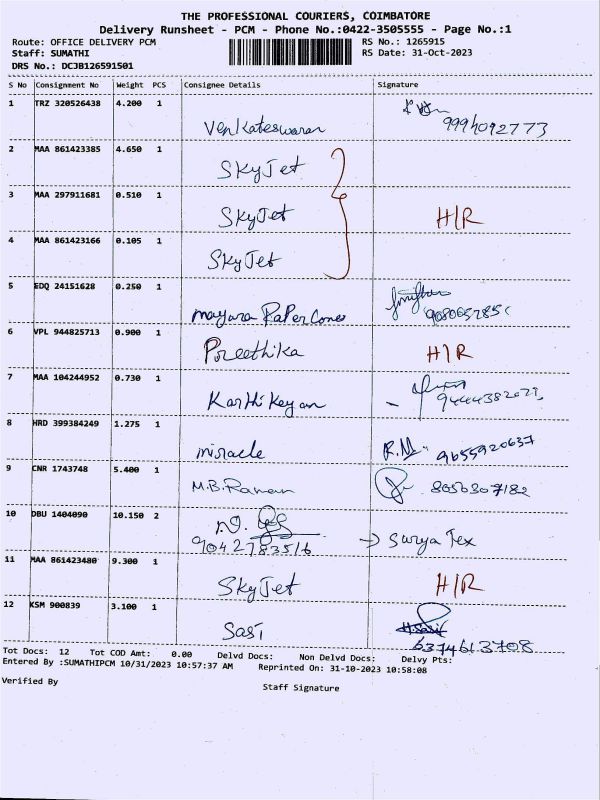 THE PROFESSIONAL COURIERS, COIMBATORE
Delivery Runsheet - PCM - Phone No.:0422-3505555 - Page No.:1
Route: OFFICE DELIVERY PCM RS No.: 1265915
Staff: SUMATHI RS Date: 31-Oct-2023
DRS No.: DCJB126591501
S No Consignment No Weight PCS Consignee Details Signature
1 TRZ 320526438 4.200 1
Venkateswaran 9994092773
2 MAA 861423385 4.650 1 SkyJet
3 MAA 297911681 0.510 1 SkyJet H/R
4 MAA 861423166 0.105 1 SkyJet
5 EDQ 24151628 0.250 1
mayara Paper Cones
6 VPL 944825713 0.900 1 Preethika H/R
7 MAA 104244952 0.730 1
Karthikeyan
8 HRD 399384249 1.275 1
miracle 9655920637
9 CNR 1743748 5.400 1
M.B.Raman 8056307182
10 DBU 1404090 10.150 2
9042783516 → Surya Tex
11 MAA 861423480 9.300 1
SkyJet H/R
12 KSM 900839 3.100 1
Sasi 6374613708
Tot Docs: 12 Tot COD Amt: 0.00 Delvd Docs: Non Delvd Docs: Delvy Pts:
Entered By :SUMATHIPCM 10/31/2023 10:57:37 AM Reprinted On: 31-10-2023 10:58:08
Verified By
Staff Signature